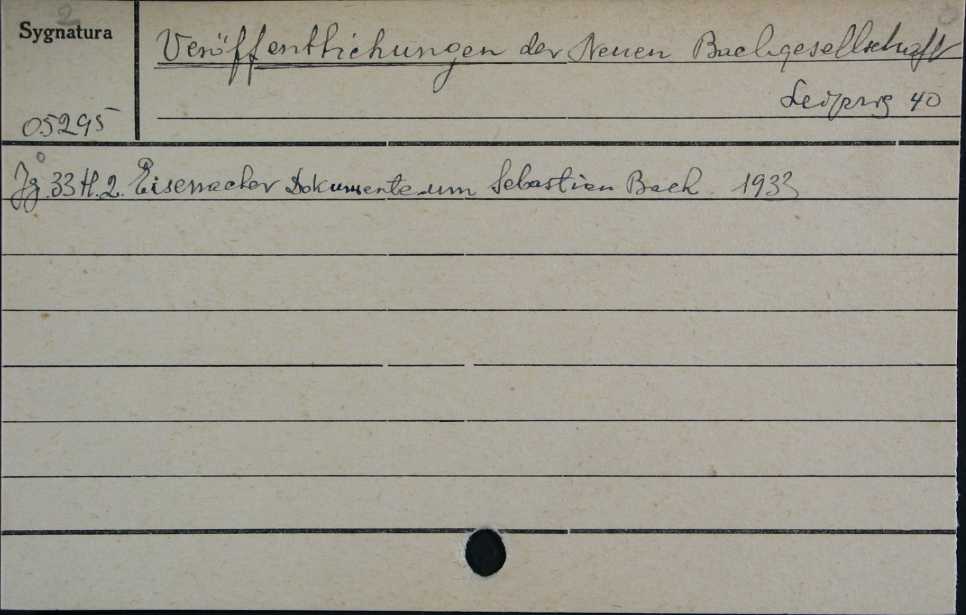 2
Sygnatura
Veröffentlichungen der Neuen Bachgesellschaft
Leipzig 40
05295
Jg. 33 H. 2. Eisenacher Dokumente um Sebastian Bach 1933